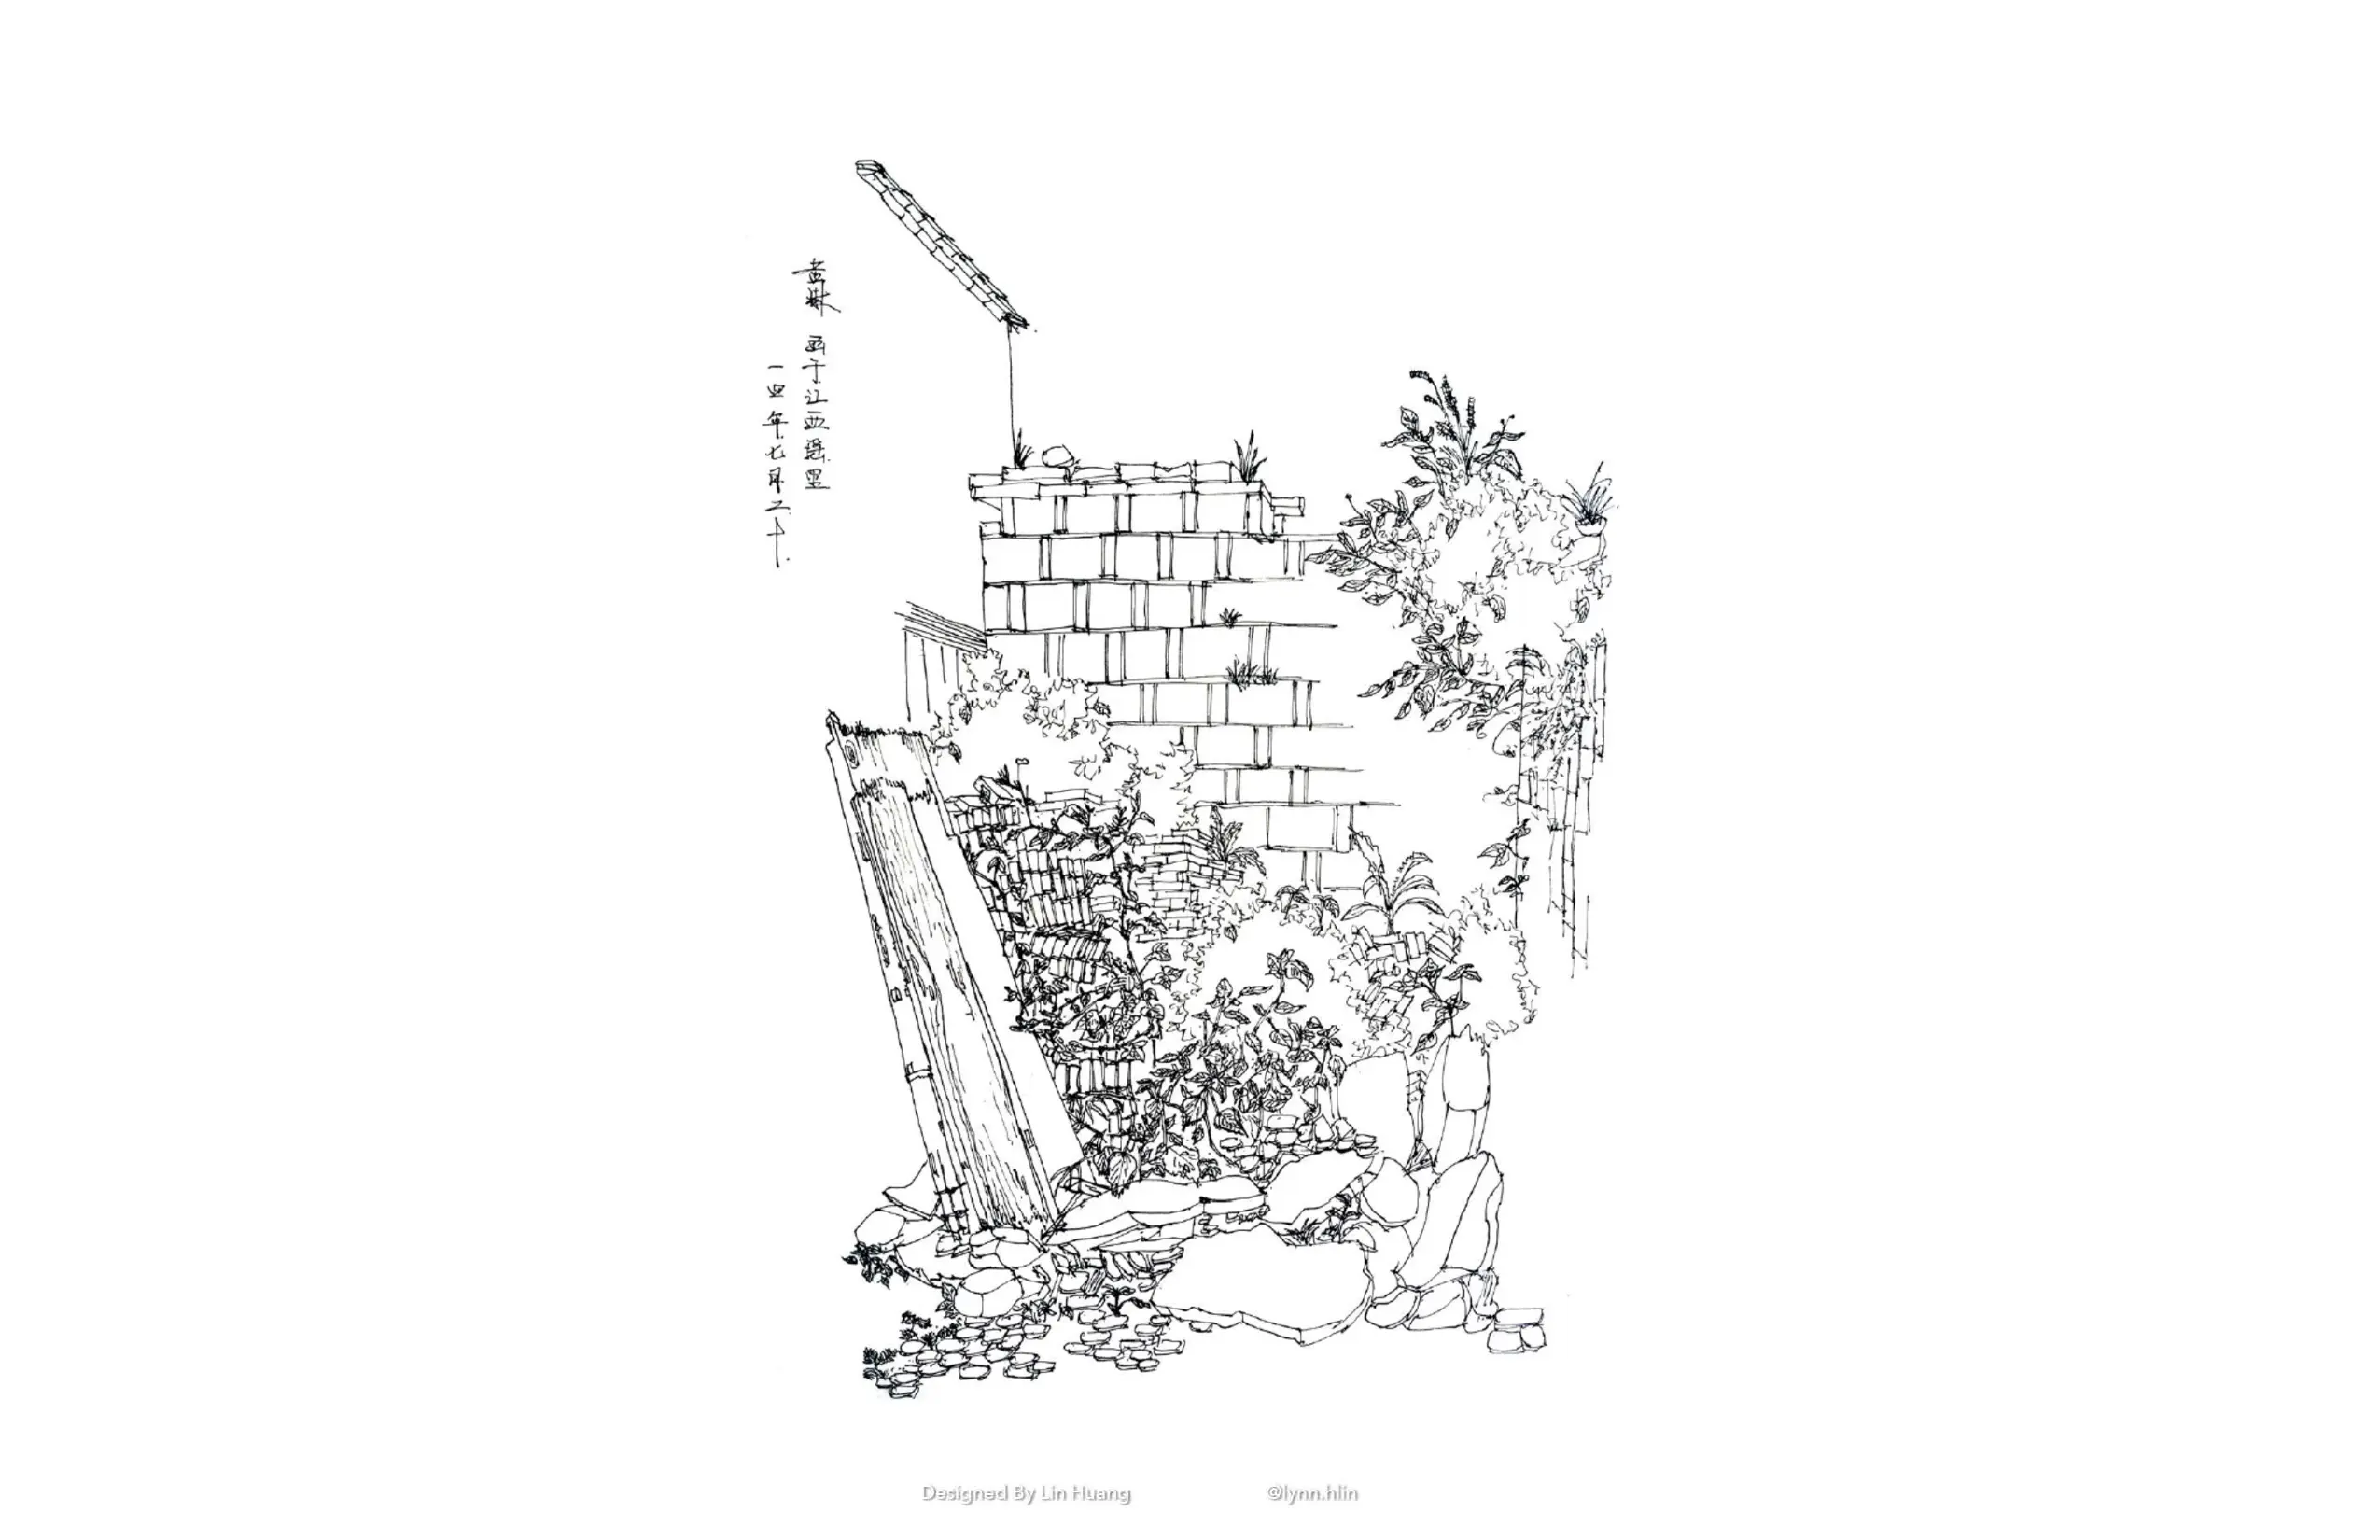 黄琳 画于江西瑶里
一四年七月二十
Designed By Lin Huang
@lynn.hlin